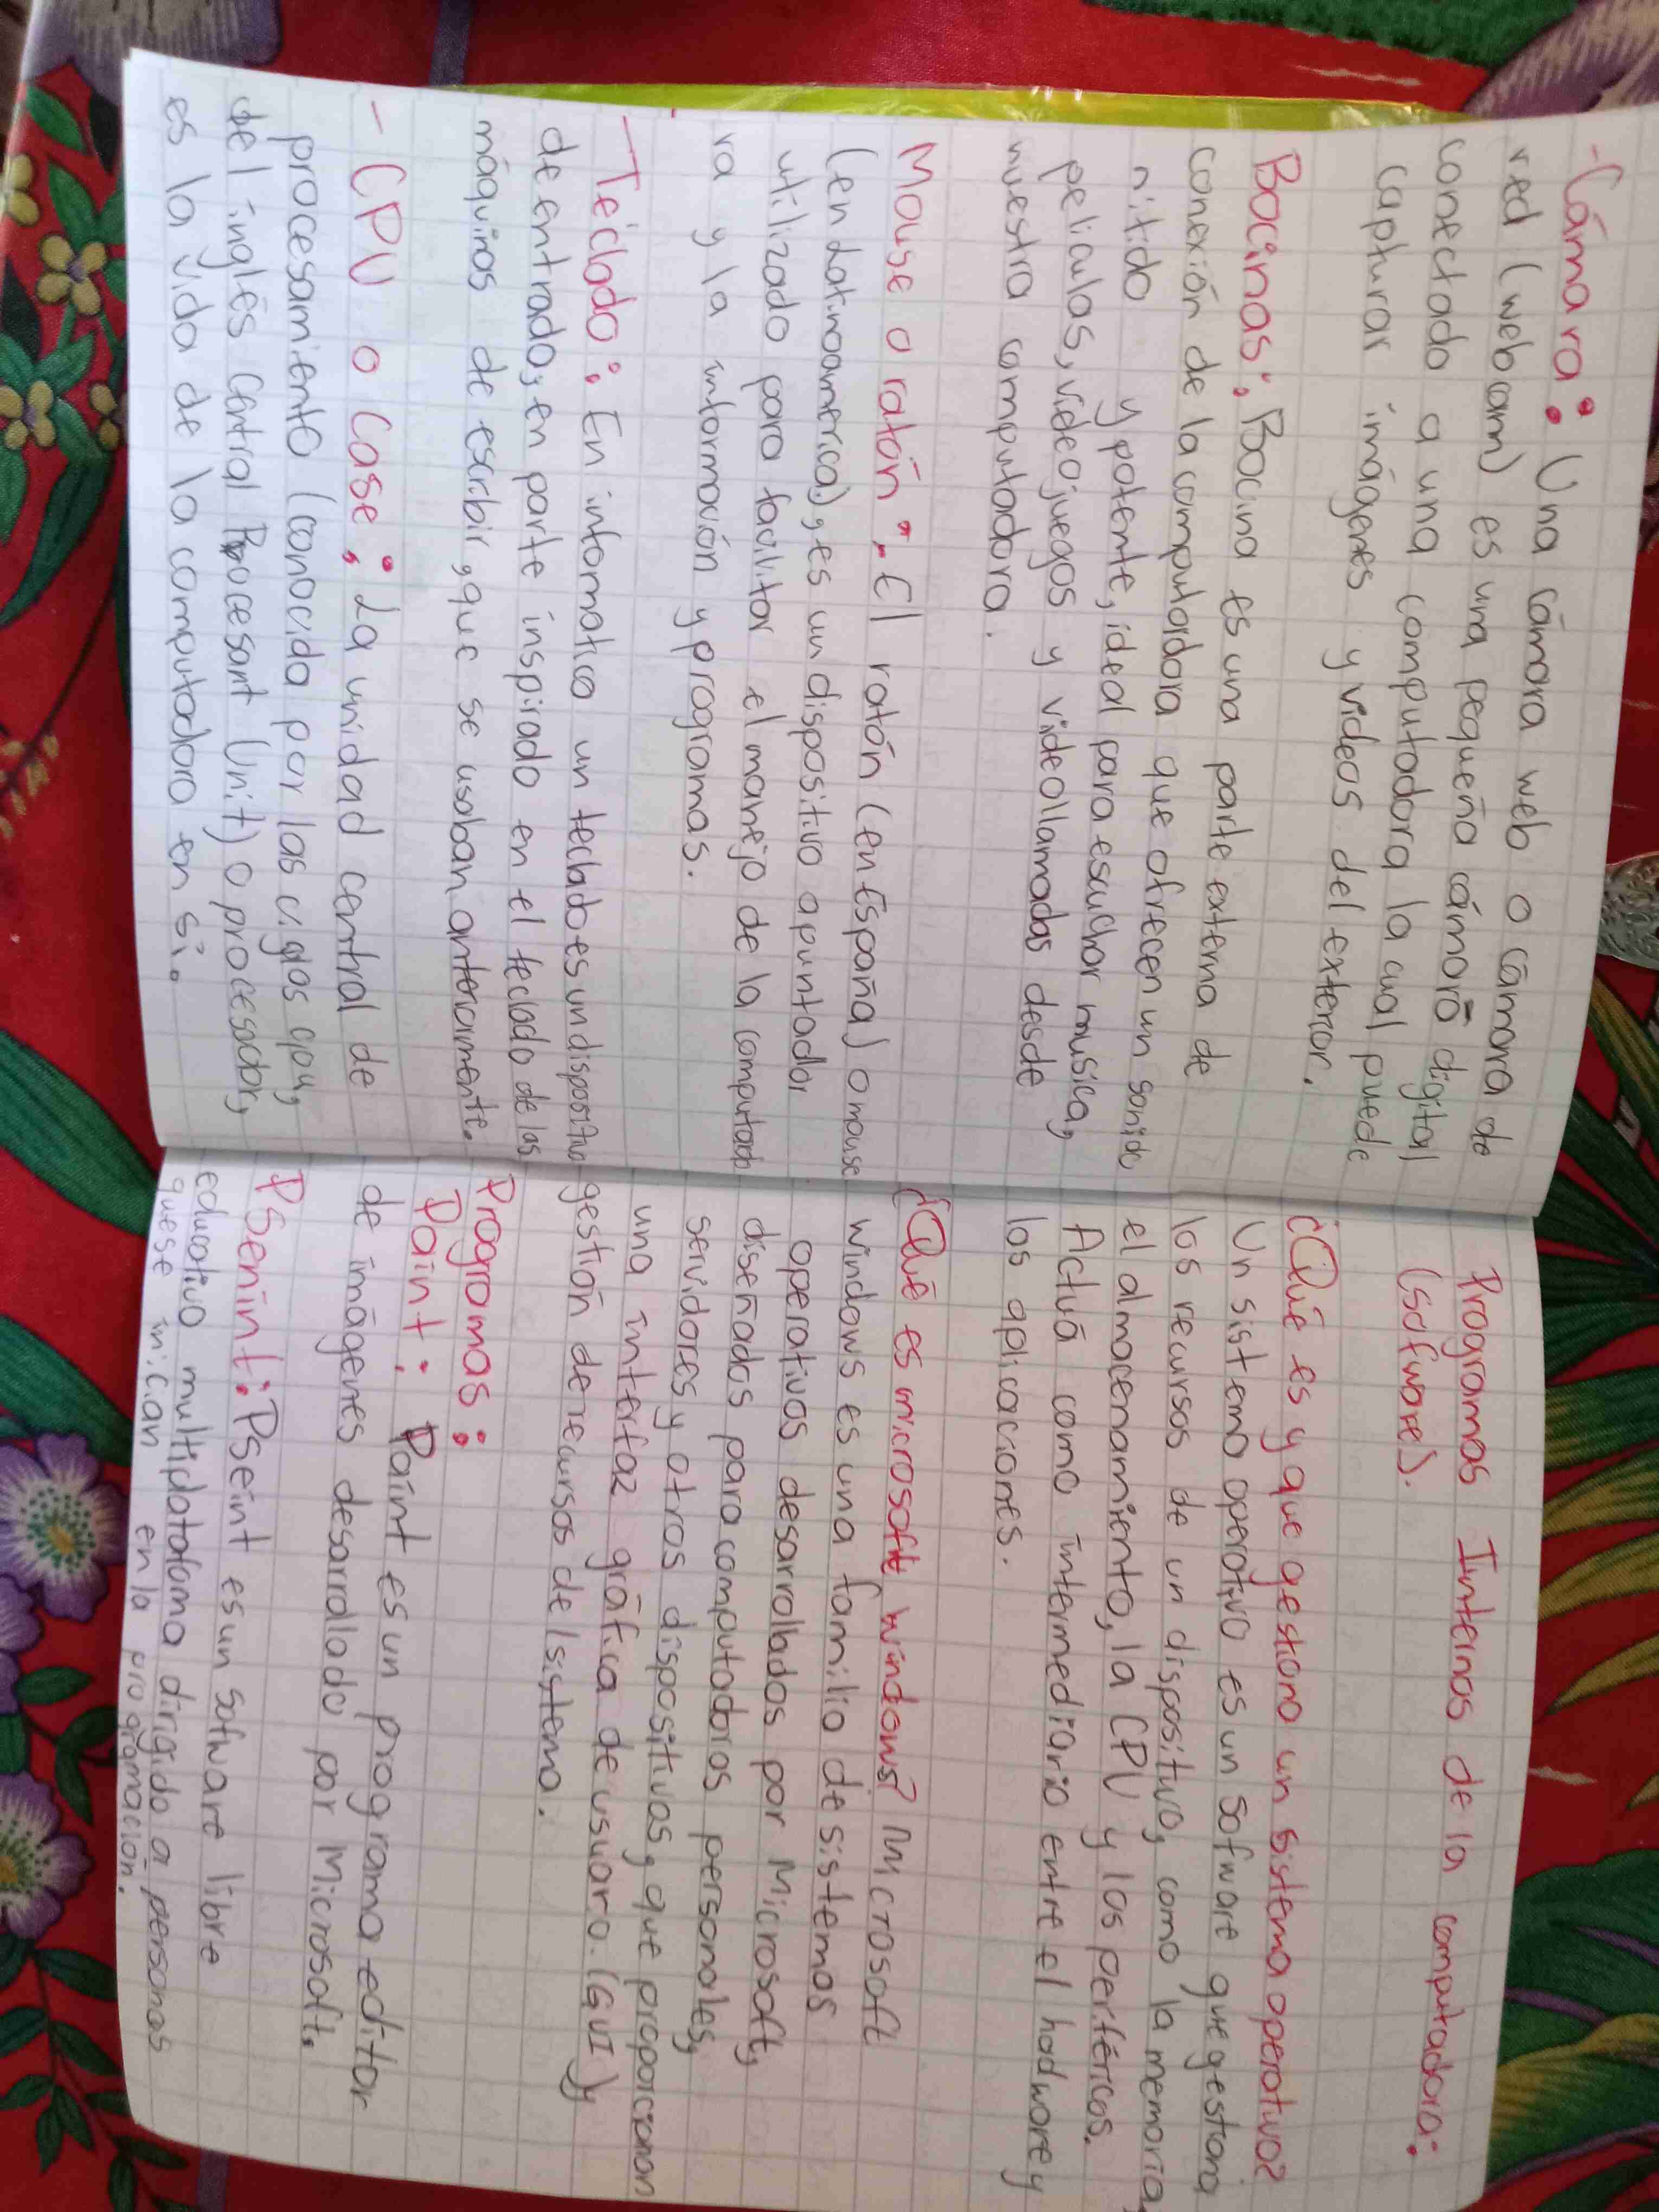 - Cámara: Una cámara web o cámara de
red (webcam) es una pequeña cámara digital
conectado a una computadora la cual puede
capturar imágenes y videos del exterior.
Bocinas: Bocina es una parte externa de
conexión de la compurdora que ofrecen un sonido
nitido y potente, ideal para esuchor musica,
peliculas, videojuegos y videollamadas desde
nuestra computadora.
Mouse o ratón: El ratón (en España) o mouse
(en latinoamerica), es un dispositivo apuntador
utilizado para facilitar el manejo de la computado
ra y la información y programas.
- Teclado: En informatica un teclado es un dispositivo
de entrado, en parte inspirado en el teclado de las
máquinas de escribir, que se usaban anteriormente.
- CPU o Case: La unidad central de
procesamiento (conocida por las siglas cpu,
del inglés Central Procesant Unit) o procesador,
es la vida de la computadora en si.
Programas Internos de la computadora:
(sofware).
¿Qué es y que gestiona un sistema operativo?
Un sistema operativo es un sofware que gestiona
los recursos de un dispositivo, como la memoria,
el almacenamiento, la CPU y los periféricos.
Actuá como intermediario entre el hadware y
los aplicaciones.
¿Qué es microsoft windows? Microsoft
windows es una familia de sistemas
operativos desarrollados por Microsoft,
diseñados para computadoras personales,
servidores y otros dispositivos, que proporcionan
una interfaz gráfica de usuaro. (GUI) y
gestión de recursos del sistema.
Programas:
Paint: Paint es un programa editor
de imágenes desarrollado por Microsoft.
PSenint: PSeint es un sofware libre
educativo multidotaforma dirigido a personas
que se inician en la programación.